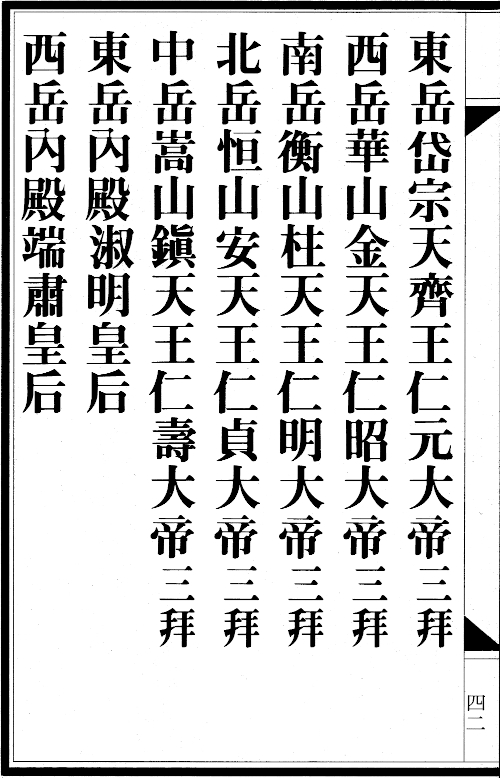 東岳岱宗天齊王仁元大帝三拜
西岳華山金天王仁昭大帝三拜
南岳衡山柱天王仁明大帝三拜
北岳恒山安天王仁貞大帝三拜
中岳嵩山鎭天王仁壽大帝三拜
東岳內殿淑明皇后
西岳內殿端肅皇后
四二